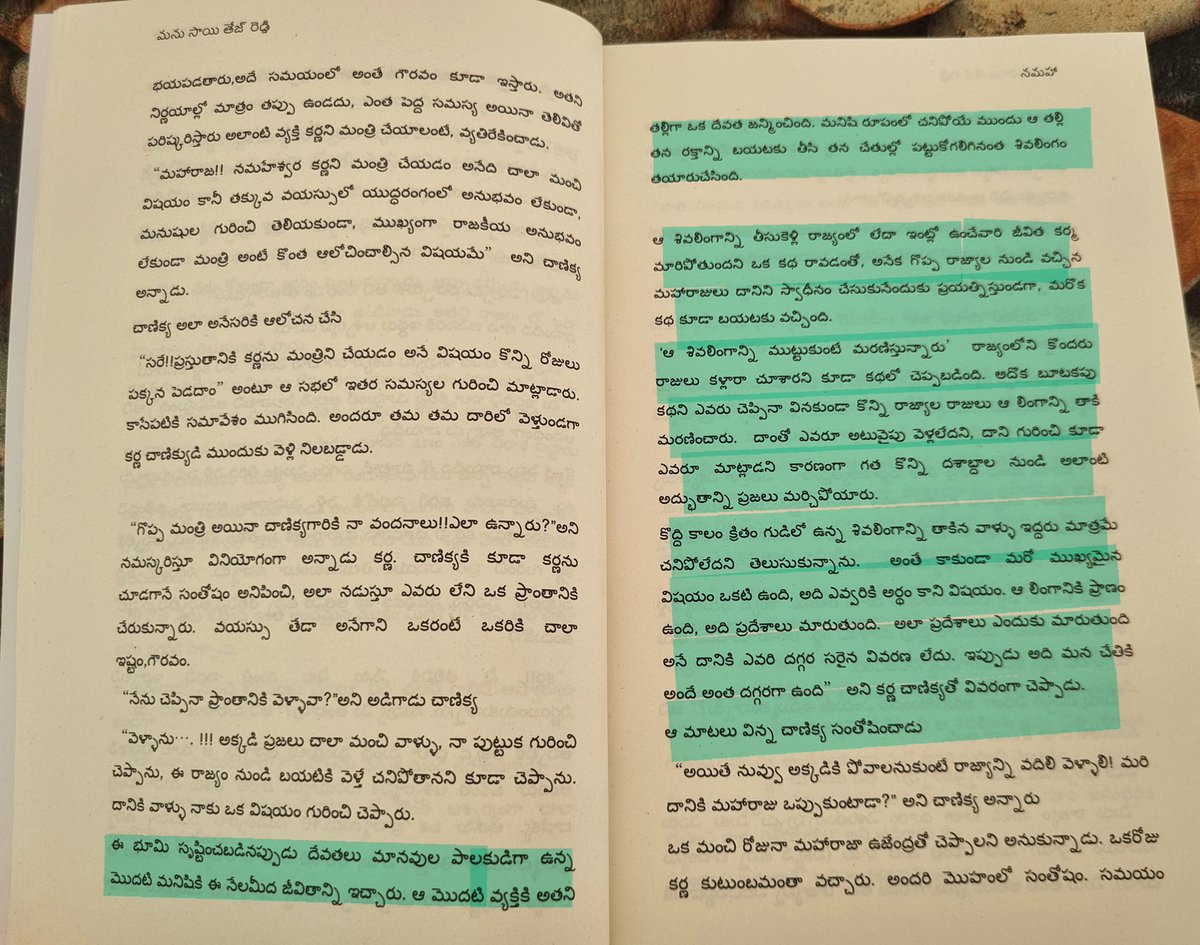 మను సాయి తేజ్ రెడ్డి
భయపడతారు,అదే సమయంలో అంతే గౌరవం కూడా ఇస్తారు. అతని
నిర్ణయాల్లో మాత్రం తప్పు ఉండదు, ఎంత పెద్ద సమస్య అయినా తెలివితో
పరిష్కరిస్తారు అలాంటి వ్యక్తి కర్ణని మంత్రి చేయాలంటే, వ్యతిరేకించాడు.
“మహారాజ!! నమహేశ్వర కర్ణని మంత్రి చేయడం అనేది చాలా మంచి
విషయం కానీ తక్కువ వయస్సులో యుద్ధరంగంలో అనుభవం లేకుండా,
మనుషుల గురించి తెలియకుండా, ముఖ్యంగా రాజకీయ అనుభవం
లేకుండా మంత్రి అంటే కొంత ఆలోచించాల్సిన విషయమే” అని చాణిక్య
అన్నాడు.
చాణిక్య అలా అనేసరికి ఆలోచన చేసి
“సరే!!ప్రస్తుతానికి కర్ణను మంత్రిని చేయడం అనే విషయం కొన్ని రోజులు
పక్కన పెడదాం” అంటూ ఆ సభలో ఇతర సమస్యల గురించి మాట్లాడారు.
కాసేపటికి సమావేశం ముగిసింది. అందరూ తమ తమ దారిలో వెళ్తుండగా
కర్ణ చాణిక్యుడి ముందుకు వెళ్లి నిలబడ్డాడు.
“గొప్ప మంత్రి అయినా చాణిక్యగారికి నా వందనాలు!!ఎలా ఉన్నారు?”అని
నమస్కరిస్తూ వినియోగంగా అన్నాడు కర్ణ. చాణిక్యకి కూడా కర్ణను
చూడగానే సంతోషం అనిపించి, అలా నడుస్తూ ఎవరు లేని ఒక ప్రాంతానికి
చేరుకున్నారు. వయస్సు తేడా అనేగాని ఒకరంటే ఒకరికి చాలా
ఇష్టం,గౌరవం.
“నేను చెప్పినా ప్రాంతానికి వెళ్ళావా?”అని అడిగాడు చాణిక్య
“వెళ్ళాను…. !!! అక్కడి ప్రజలు చాలా మంచి వాళ్ళు, నా పుట్టుక గురించి
చెప్పాను, ఈ రాజ్యం నుండి బయటికి వెళ్తే చనిపోతానని కూడా చెప్పాను.
దానికి వాళ్ళు నాకు ఒక విషయం గురించి చెప్పారు.
ఈ భూమి సృష్టించబడినప్పుడు దేవతలు మానవుల పాలకుడిగా ఉన్న
మొదటి మనిషికి ఈ నేలమీద జీవితాన్ని ఇచ్చారు. ఆ మొదటి వ్యక్తికి అతని
నమహా
తల్లిగా ఒక దేవత జన్మించింది. మనిషి రూపంలో చనిపోయే ముందు ఆ తల్లి
తన రక్తాన్ని బయటకు తీసి తన చేతుల్లో పట్టుకోగలిగినంత శివలింగం
తయారుచేసింది.
ఆ శివలింగాన్ని తీసుకెళ్లి రాజ్యంలో లేదా ఇంట్లో ఉంచేవారి జీవిత కర్మ
మారిపోతుందని ఒక కథ రావడంతో, అనేక గొప్ప రాజ్యాల నుండి వచ్చిన
మహారాజులు దానిని స్వాధీనం చేసుకునేందుకు ప్రయత్నిస్తుండగా, మరొక
కథ కూడా బయటకు వచ్చింది.
‘ఆ శివలింగాన్ని ముట్టుకుంటే మరణిస్తున్నారు’ రాజ్యంలోని కొందరు
రాజులు కళ్లారా చూశారని కూడా కథలో చెప్పబడింది. అదొక బూటకపు
కథని ఎవరు చెప్పినా వినకుండా కొన్ని రాజ్యాల రాజులు ఆ లింగాన్ని తాకి
మరణించారు. దాంతో ఎవరూ అటువైపు వెళ్లలేదని, దాని గురించి కూడా
ఎవరూ మాట్లాడని కారణంగా గత కొన్ని దశాబ్దాల నుండి అలాంటి
అద్భుతాన్ని ప్రజలు మర్చిపోయారు.
కొద్ది కాలం క్రితం గుడిలో ఉన్న శివలింగాన్ని తాకిన వాళ్ళు ఇద్దరు మాత్రమే
చనిపోలేదని తెలుసుకున్నాను. అంతే కాకుండా మరో ముఖ్యమైన
విషయం ఒకటి ఉంది, అది ఎవ్వరికి అర్థం కాని విషయం. ఆ లింగానికి ప్రాణం
ఉంది, అది ప్రదేశాలు మారుతుంది. అలా ప్రదేశాలు ఎందుకు మారుతుంది
అనే దానికి ఎవరి దగ్గర సరైన వివరణ లేదు. ఇప్పుడు అది మన చేతికి
అందే అంత దగ్గరగా ఉంది” అని కర్ణ చాణిక్యతో వివరంగా చెప్పాడు.
ఆ మాటలు విన్న చాణిక్య సంతోషించాడు
“అయితే నువ్వు అక్కడికి పోవాలనుకుంటే రాజ్యాన్ని వదిలి వెళ్ళాలి! మరి
దానికి మహారాజు ఒప్పుకుంటాడా?” అని చాణిక్య అన్నారు
ఒక మంచి రోజునా మహారాజా ఉజేంద్రతో చెప్పాలని అనుకున్నాడు. ఒకరోజు
కర్ణ కుటుంబమంతా వచ్చారు. అందరి మొహంలో సంతోషం. సమయం